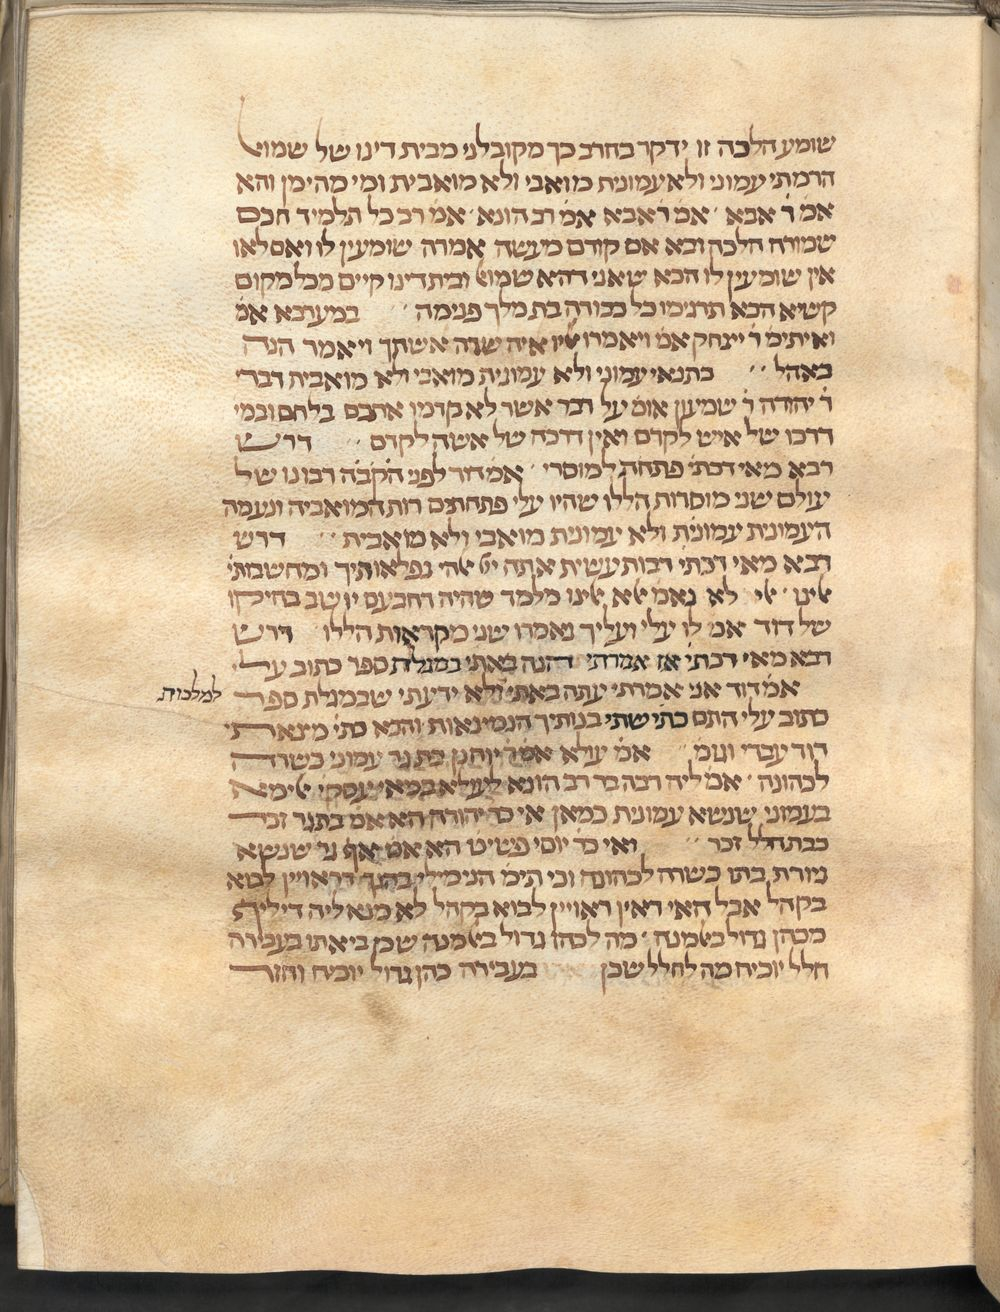 שומע הלכה זו ידקר בחרב כך מקובלני מבית דינו של שמוא׳
הרמתי עמוני ולא עמונית מואבי ולא מואבית ומי מהימן והא
אמ׳ ר׳ אבא ׳ אמ׳ ר אבא אמ׳ רב הונא ׳ אמ׳ רב כל תלמיד חכם
שמורה הלכה ובא אם קודם מעשה אמרה שומעין לו ואם לאו
אין שומעין לו הכא שאני דהא שמוא׳ ובית דינו קיים מכל מקום
קשיא הכא תרגימו כל כבודה בת מלך פנימה ׳ ׳ במערבא אמ׳
ואיתימ׳ ר׳ יצחק אמ׳ ויאמרו אליו איה שרה אשתך ויאמר הנה
באהל ׳ ׳ כתנאי עמוני ולא עמונית מואבי ולא מואבית דברי
ר׳ יהודה ר׳ שמעון אומ׳ על דבר אשר לא קדמו אתכם בלחם ובמי
דרכו של איש לקדם ואין דרכה של אשה לקדם ׳ ׳ דרש
רבא מאי דכתי׳ פתחת למוסרי ׳ אמ׳ דוד לפני הק֗ב֗ה֗ רבונו של
עולם שני מוסרות הללו שהיו עלי פתחתים רות המואביה ונעמה
העמונית עמונית ולא עמונית מואבי ולא מואבית ׳ ׳ דרש
רבא מאי דכתי׳ רבות עשית אתה י׳י אהי׳ נפלאותיך ומחשבתי׳
אינו ׳ אי׳ לא נאמ׳ אא׳ אינו מלמד שהיה רחבעם יושב בחיקו
של דוד אמ׳ לו עלי ועליך נאמרו שני מקראות הללו דרש
רבא מאי דכתי׳ אז אמרתי הנה באתי במגלת ספר כתוב עלי
אמ׳ דוד אני אמרתי עתה באתי ולא ידעתי שבמגלת ספר
למלכות
כתוב עלי התם כתי׳ שתי בנותיך הנמצאות והכא כתי׳ מצאתי
דוד עבדי וגומ׳ אמ׳ עולא אמ׳ ר׳ יוחנן בת גר עמוני כשרה
לכהונה ׳ אמ׳ ליה רבה בר רב הונא לעולא כמאי עסקי׳ אימא
בעמוני שנשא עמונית כמאן אי כר׳ יהודה הא אמ׳ בת גר זכר
כבת חלל זכר ׳ ׳ ואי כר׳ יוסי פשיט׳ הא אמ׳ אף גר שנשא
גיורת בתו כשרה לכהונה וכי תימ׳ הני מילי בהנך דראויין לבוא
בקהל אבל האי דאין ראויין לבוא בקהל לא מנא ליה דיליף
מכהן גדול באלמנה ׳ מה לכהן גדול באלמנה שכן ביאתו בעבירה
חלל יוכיח מה לחלל שכן בעבירה כהן גדול יוכיח וחזר